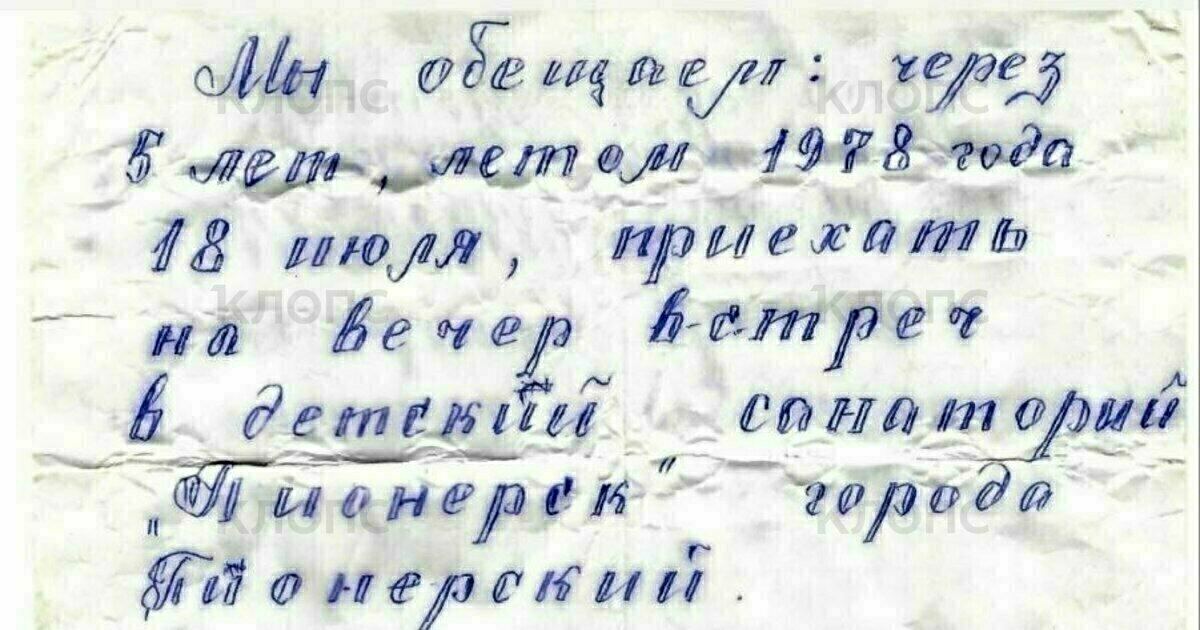 Мы обещаем: через
5 лет, летом 1978 года
18 июля, приехать
на вечер встреч
в детский санаторий
„Пионерск" города
Пионерский.
КЛОПС КЛОПС
КЛОПС КЛОПС
КЛОПС КЛОПС